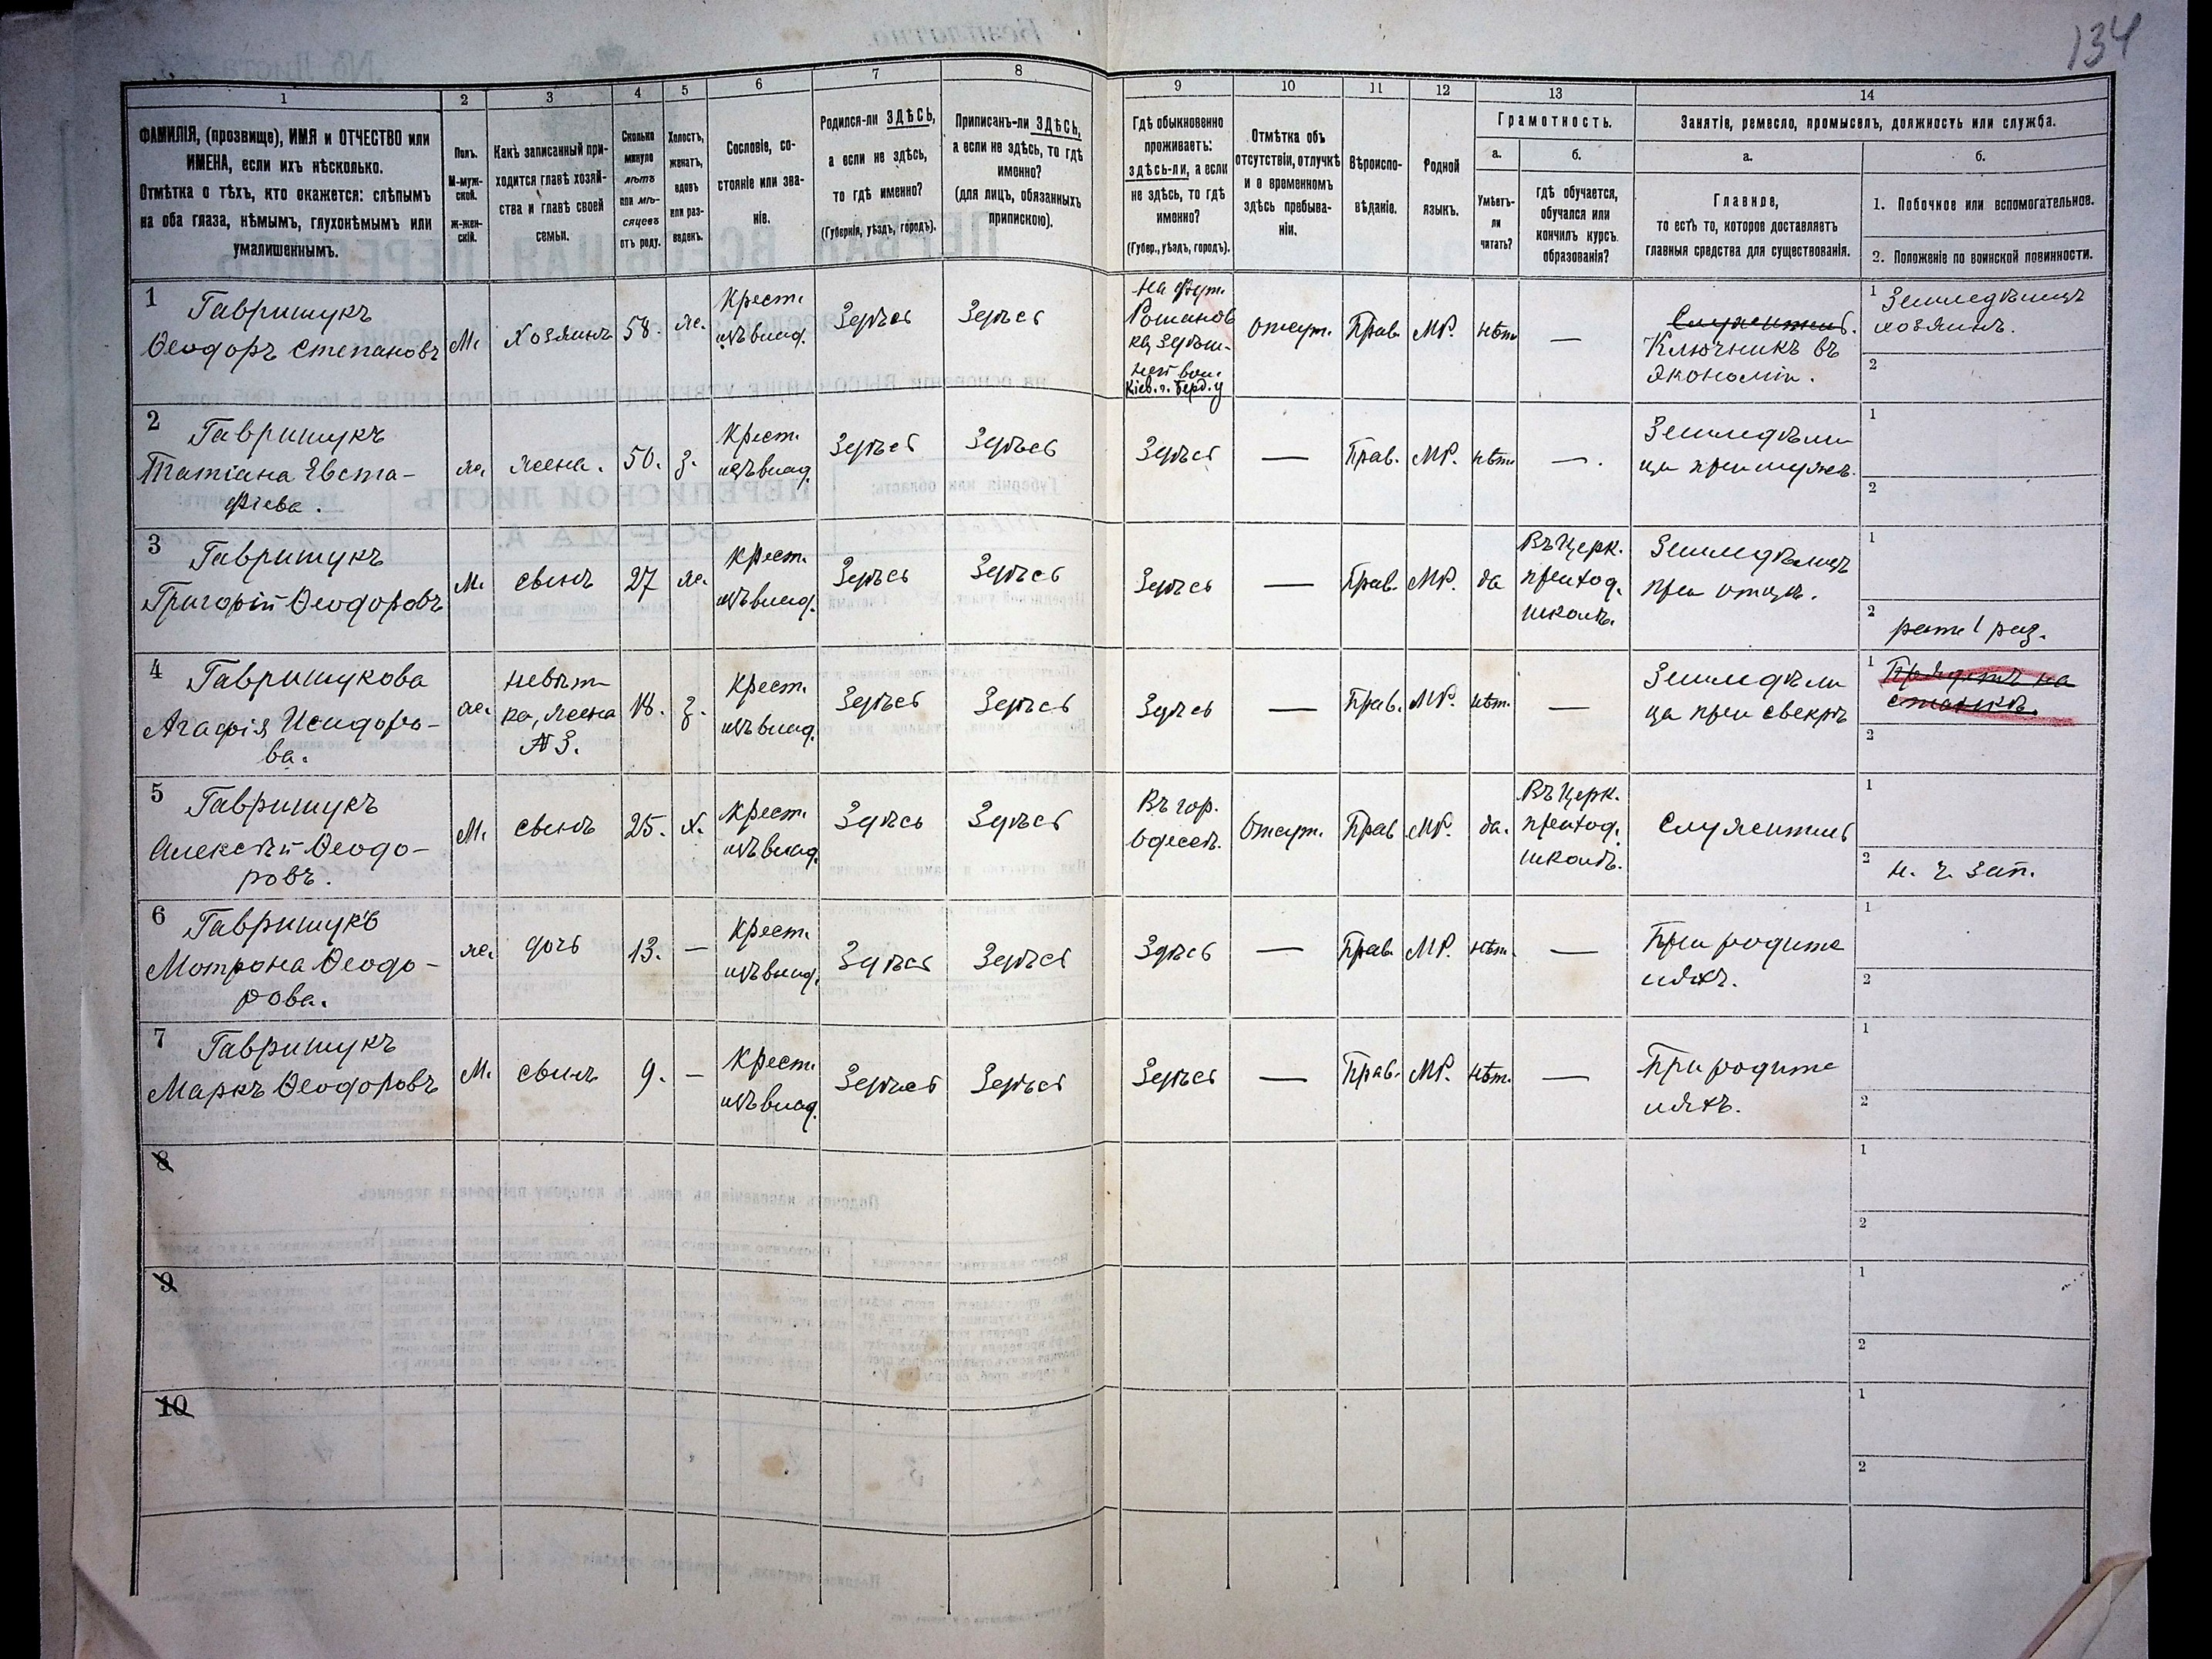 134
1
2
3
4
5
6
7
8
9
10
11
12
13
14
ФАМИЛІЯ, (прозвище), ИМЯ и ОТЧЕСТВО или
ИМЕНА, если ихъ нѣсколько.
Отмѣтка о тѣхъ, кто окажется: слѣпымъ
на оба глаза, нѣмымъ, глухонѣмымъ или
умалишеннымъ.
Полъ.
М-муж-
ской.
ж-жен-
скій.
Какъ записанный при-
ходится главѣ хозяй-
ства и главѣ своей
семьи.
Сколько
минуло
лѣтъ
или мѣ-
сяцевъ
отъ роду.
Холостъ,
женатъ,
вдовъ
или раз-
веденъ.
Сословіе, со-
стояніе или зва-
ніе.
Родился-ли ЗДѢСЬ,
а если не здѣсь,
то гдѣ именно?
(Губернія, уѣздъ, городъ).
Приписанъ-ли ЗДѢСЬ,
а если не здѣсь, то гдѣ
именно?
(для лицъ, обязанныхъ
припискою).
Гдѣ обыкновенно
проживаетъ:
здѣсь-ли, а если
не здѣсь, то гдѣ
именно?
(Губер., уѣздъ, городъ).
Отмѣтка объ
отсутствіи, отлучкѣ
и о временномъ
здѣсь пребыва-
ніи.
Вѣроиспо-
вѣданіе.
Родной
языкъ.
Грамотность.
а.
б.
Умѣетъ-
ли
читать?
гдѣ обучается,
обучался или
кончилъ курсъ
образованія?
Занятіе, ремесло, промыселъ, должность или служба.
а.
б.
Главное,
то есть то, которое доставляетъ
главныя средства для существованія.
1. Побочное или вспомогательное.
2. Положеніе по воинской повинности.
1 Гаврищукъ
Ѳеодоръ Степановъ
М.
хозяинъ
58.
ж.
Крест.
изъ влад.
Здѣсь
Здѣсь
на фут.
Романов
ка, здѣш-
ней вол.
Кіев. г. Берд. у
Отсут.
Прав.
МР.
нѣт
—
Служитель.
Ключникъ въ
экономіи.
1 Земледѣлецъ
хозяинъ.
2
2 Гаврищукъ
Татіана Евста-
фіева.
ж.
жена.
50.
з.
Крест.
изъ влад.
Здѣсь
Здѣсь
Здѣсь
—
Прав.
МР.
нѣт.
—.
Земледѣли
ца при мужѣ.
1
2
3 Гаврищукъ
Григорій Ѳеодоровъ
М.
сынъ
27
ж.
Крест.
изъ влад.
Здѣсь
Здѣсь
Здѣсь
—
Прав.
МР.
да
Въ церк.
приход.
школѣ.
Земледѣлецъ
при отцѣ.
1
2 ратн 1 раз.
4 Гаврищукова
Агафія Исидоро-
ва.
ж.
невѣст-
ка, жена
№ 3.
18.
з.
Крест.
изъ влад.
Здѣсь
Здѣсь
Здѣсь
—
Прав.
МР.
нѣт.
—
Земледѣли
ца при свекрѣ
1 Прядетъ на
станкѣ.
2
5 Гаврищукъ
Алексѣй Ѳеодо-
ровъ.
М.
сынъ
25.
х.
Крест.
изъ влад.
Здѣсь
Здѣсь
Въ гор.
Одессѣ.
Отсут.
Прав
МР.
да.
Въ церк.
приход.
школѣ.
Служитель
1
2 н. ч. зап.
6 Гаврищукъ
Мотрона Ѳеодо-
рова.
ж.
дочь
13.
—
Крест.
изъ влад.
Здѣсь
Здѣсь
Здѣсь
—
Прав.
МР.
нѣт.
—
При родите
ляхъ.
1
2
7 Гаврищукъ
Маркъ Ѳеодоровъ
М.
сынъ
9.
—
Крест.
изъ влад.
Здѣсь
Здѣсь
Здѣсь
—
Прав.
МР.
нѣт.
—
При родите
ляхъ.
1
2
8
1
2
9
1
2
10
1
2